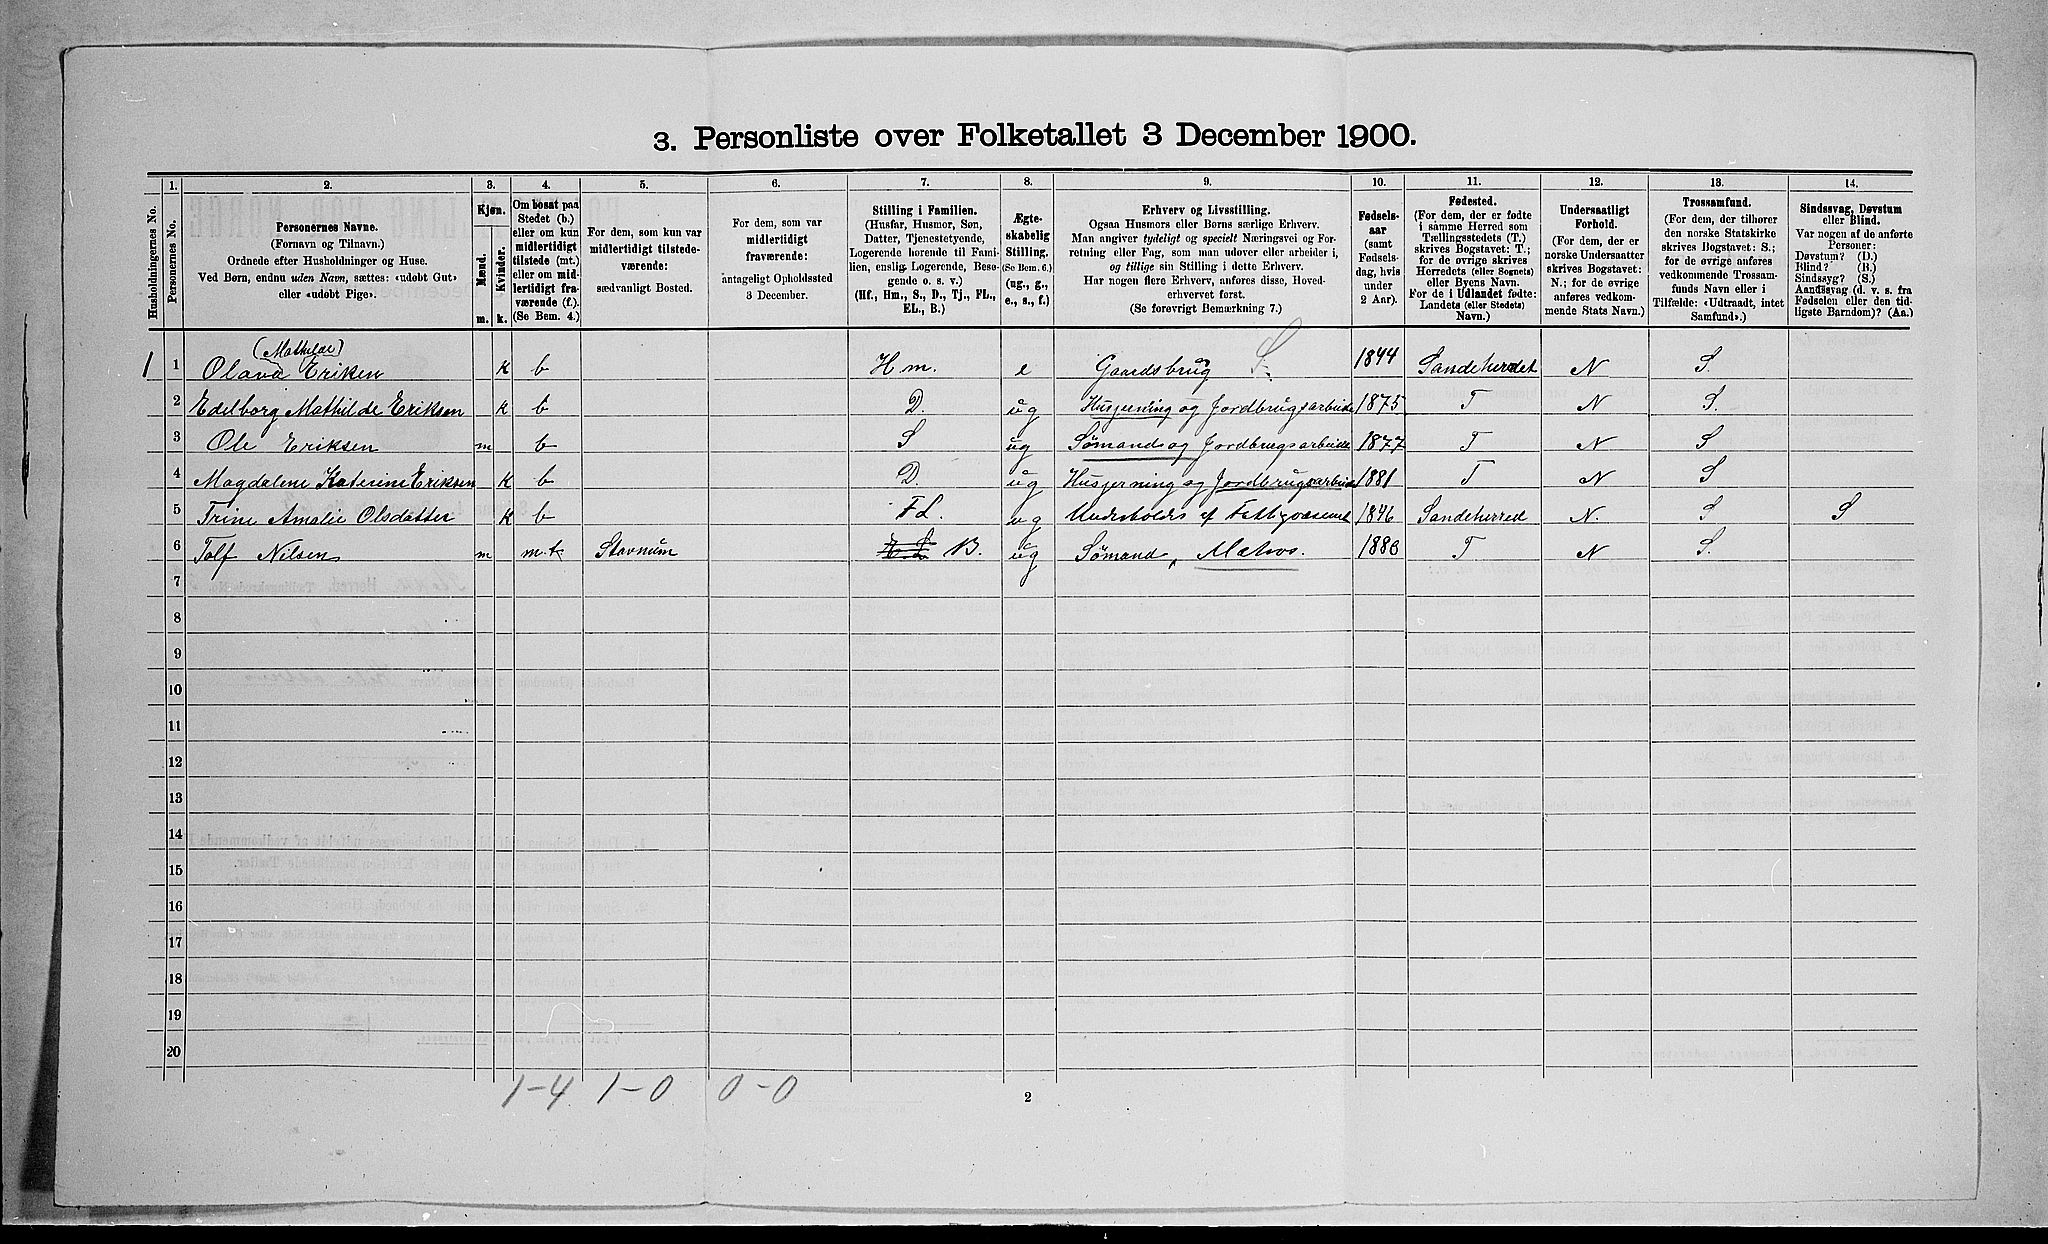 3. Personliste over Folketallet 3 December 1900.
Husholdningernes No.
1.
Personernes No.
2.
Personernes Navne.
(Fornavn og Tilnavn.)
Ordnede efter Husholdninger og Huse.
Ved Børn, endnu uden Navn, sættes: «udøbt Gut»
eller «udøbt Pige».
3.
Kjøn.
Mænd.
Kvinder.
m.
k.
4.
Om bosat paa
Stedet (b.)
eller om kun
midlertidigt
tilstede (mt.)
eller om mid-
lertidigt fra-
værende (f.).
(Se Bem. 4.)
5.
For dem, som kun var
midlertidigt tilstede-
værende:
sædvanligt Bosted.
6.
For dem, som var
midlertidigt
fraværende:
antageligt Opholdssted
3 December.
7.
Stilling i Familien.
(Husfar, Husmor, Søn,
Datter, Tjenestetyende,
Logerende hørende til Fami-
lien, enslig Logerende, Besø-
gende o. s. v.)
(Hf., Hm., S., D., Tj., FL.,
EL., B.)
8.
Ægte-
skabelig
Stilling.
(Se Bem. 6.)
(ug., g.,
e., s., f.)
9.
Erhverv og Livsstilling.
Ogsaa Husmors eller Børns særlige Erhverv.
Man angiver tydeligt og specielt Næringsvei og For-
retning eller Fag, som man udøver eller arbeider i,
og tillige sin Stilling i dette Erhverv.
Har nogen flere Erhverv, anføres disse, Hoved-
erhvervet først.
(Se forøvrigt Bemærkning 7.)
10.
Fødsels-
aar
(samt
Fødsels-
dag, hvis
under
2 Aar).
11.
Fødested.
(For dem, der er fødte
i samme Herred som
Tællingsstedets (T.)
skrives Bogstavet: T.;
for de øvrige skrives
Herredets (eller Sognets)
eller Byens Navn.
For de i Udlandet fødte:
Landets (eller Stedets)
Navn.)
12.
Undersaatligt
Forhold.
(For dem, der er
norske Undersaatter
skrives Bogstavet:
N.; for de øvrige
anføres vedkom-
mende Stats Navn.)
13.
Trossamfund.
(For dem, der tilhører
den norske Statskirke
skrives Bogstavet: S.;
for de øvrige anføres
vedkommende Trossam-
funds Navn eller i
Tilfælde: «Udtraadt, intet
Samfund».)
14.
Sindssvag, Døvstum
eller Blind.
Var nogen af de anførte
Personer:
Døvstum? (D.)
Blind? (B.)
Sindssyg? (S.)
Aandssvag (d. v. s. fra
Fødselen eller den tid-
ligste Barndom)? (Aa.)
1 1 Olava (Mathilde) Eriken k b Hm. e Gaardsbrug S. 1844 Sandeherredet N S.
2 Edelborg Mathilde Eriksen k b D. ug Husjerning og Jordbrugsarbeide 1875 T N S.
3 Ole Eriksen m b S ug Sømands og Jordbrugsarbeide 1877 T N S
4 Magdalene Katerine Eriksen k b D. ug Husjerning og Jordbrugsarbeide 1881 T N S
5 Trine Amalie Olsdatter k b FL. ug Underholdes af Fattigvæsenet 1846 Sandeherred N. S S
6 Tolf Nilsen m m.t Stavnum B. ug Sømand, Matros. T N S.
7
8
9
10
11
12
13
14
15
16
17
18
19
20
1-4 1-0 0-0
2